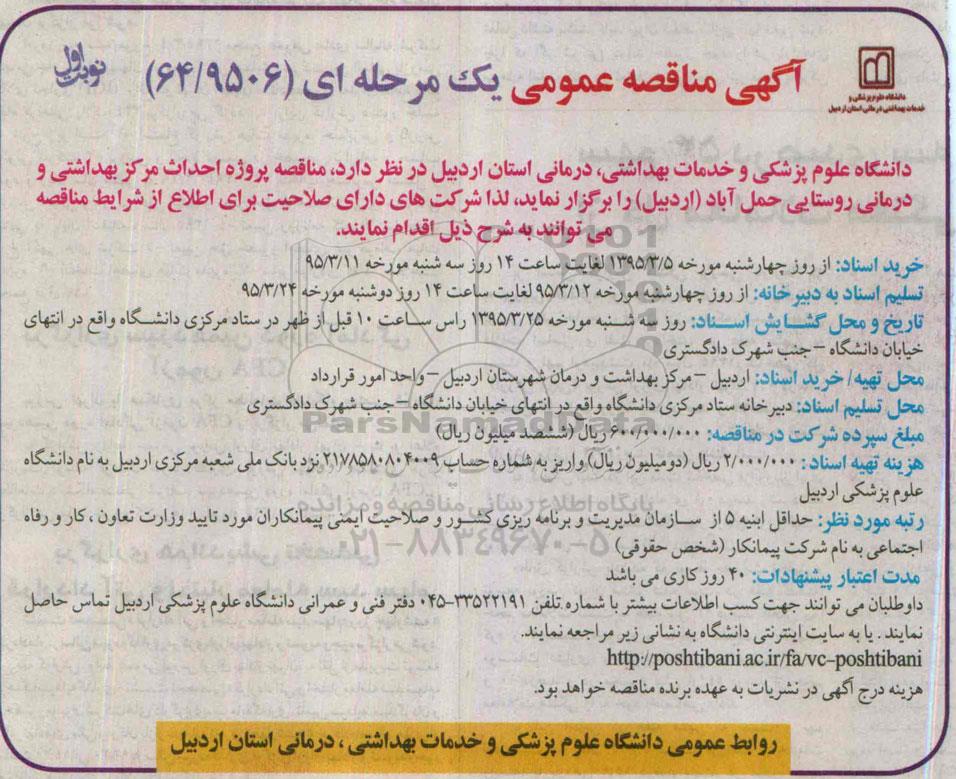 آگهی مناقصه عمومی یک مرحله ای (۶۴/۹۵۰۶)
نوبت اول
دانشگاه علوم پزشکی و
خدمات بهداشتی درمانی استان اردبیل
دانشگاه علوم پزشکی و خدمات بهداشتی، درمانی استان اردبیل در نظر دارد، مناقصه پروژه احداث مرکز بهداشتی و
درمانی روستایی حمل آباد (اردبیل) را برگزار نماید، لذا شرکت های دارای صلاحیت برای اطلاع از شرایط مناقصه
می توانند به شرح ذیل اقدام نمایند.
خرید اسناد: از روز چهارشنبه مورخه ۱۳۹۵/۳/۵ لغایت ساعت ۱۴ روز سه شنبه مورخه ۹۵/۳/۱۱
تسلیم اسناد به دبیرخانه: از روز چهارشنبه مورخه ۹۵/۳/۱۲ لغایت ساعت ۱۴ روز دوشنبه مورخه ۹۵/۳/۲۴
تاریخ و محل گشایش اسناد: روز سه شنبه مورخه ۱۳۹۵/۳/۲۵ راس ساعت ۱۰ قبل از ظهر در ستاد مرکزی دانشگاه واقع در انتهای
خیابان دانشگاه – جنب شهرک دادگستری
محل تهیه/ خرید اسناد: اردبیل – مرکز بهداشت و درمان شهرستان اردبیل – واحد امور قرارداد
محل تسلیم اسناد: دبیرخانه ستاد مرکزی دانشگاه واقع در انتهای خیابان دانشگاه – جنب شهرک دادگستری
مبلغ سپرده شرکت در مناقصه: ۶۰۰/۰۰۰/۰۰۰ ریال (ششصد میلیون ریال)
هزینه تهیه اسناد: ۲/۰۰۰/۰۰۰ ریال (دومیلیون ریال) واریز به شماره حساب ۲۱۷۸۵۸۰۸۰۴۰۰۹ نزد بانک ملی شعبه مرکزی اردبیل به نام دانشگاه
علوم پزشکی اردبیل
رتبه مورد نظر: حداقل ابنیه ۵ از سازمان مدیریت و برنامه ریزی کشور و صلاحیت ایمنی پیمانکاران مورد تایید وزارت تعاون ، کار و رفاه
اجتماعی به نام شرکت پیمانکار (شخص حقوقی)
مدت اعتبار پیشنهادات: ۴۰ روز کاری می باشد
داوطلبان می توانند جهت کسب اطلاعات بیشتر با شماره تلفن ۳۳۵۲۲۱۹۱-۰۴۵ دفتر فنی و عمرانی دانشگاه علوم پزشکی اردبیل تماس حاصل
نمایند . یا به سایت اینترنتی دانشگاه به نشانی زیر مراجعه نمایند.
http://poshtibani.ac.ir/fa/vc-poshtibani
هزینه درج آگهی در نشریات به عهده برنده مناقصه خواهد بود.
روابط عمومی دانشگاه علوم پزشکی و خدمات بهداشتی ، درمانی استان اردبیل
ParsNamadData
۰۲۱-۸۸۳۴۹۶۷۰-۵